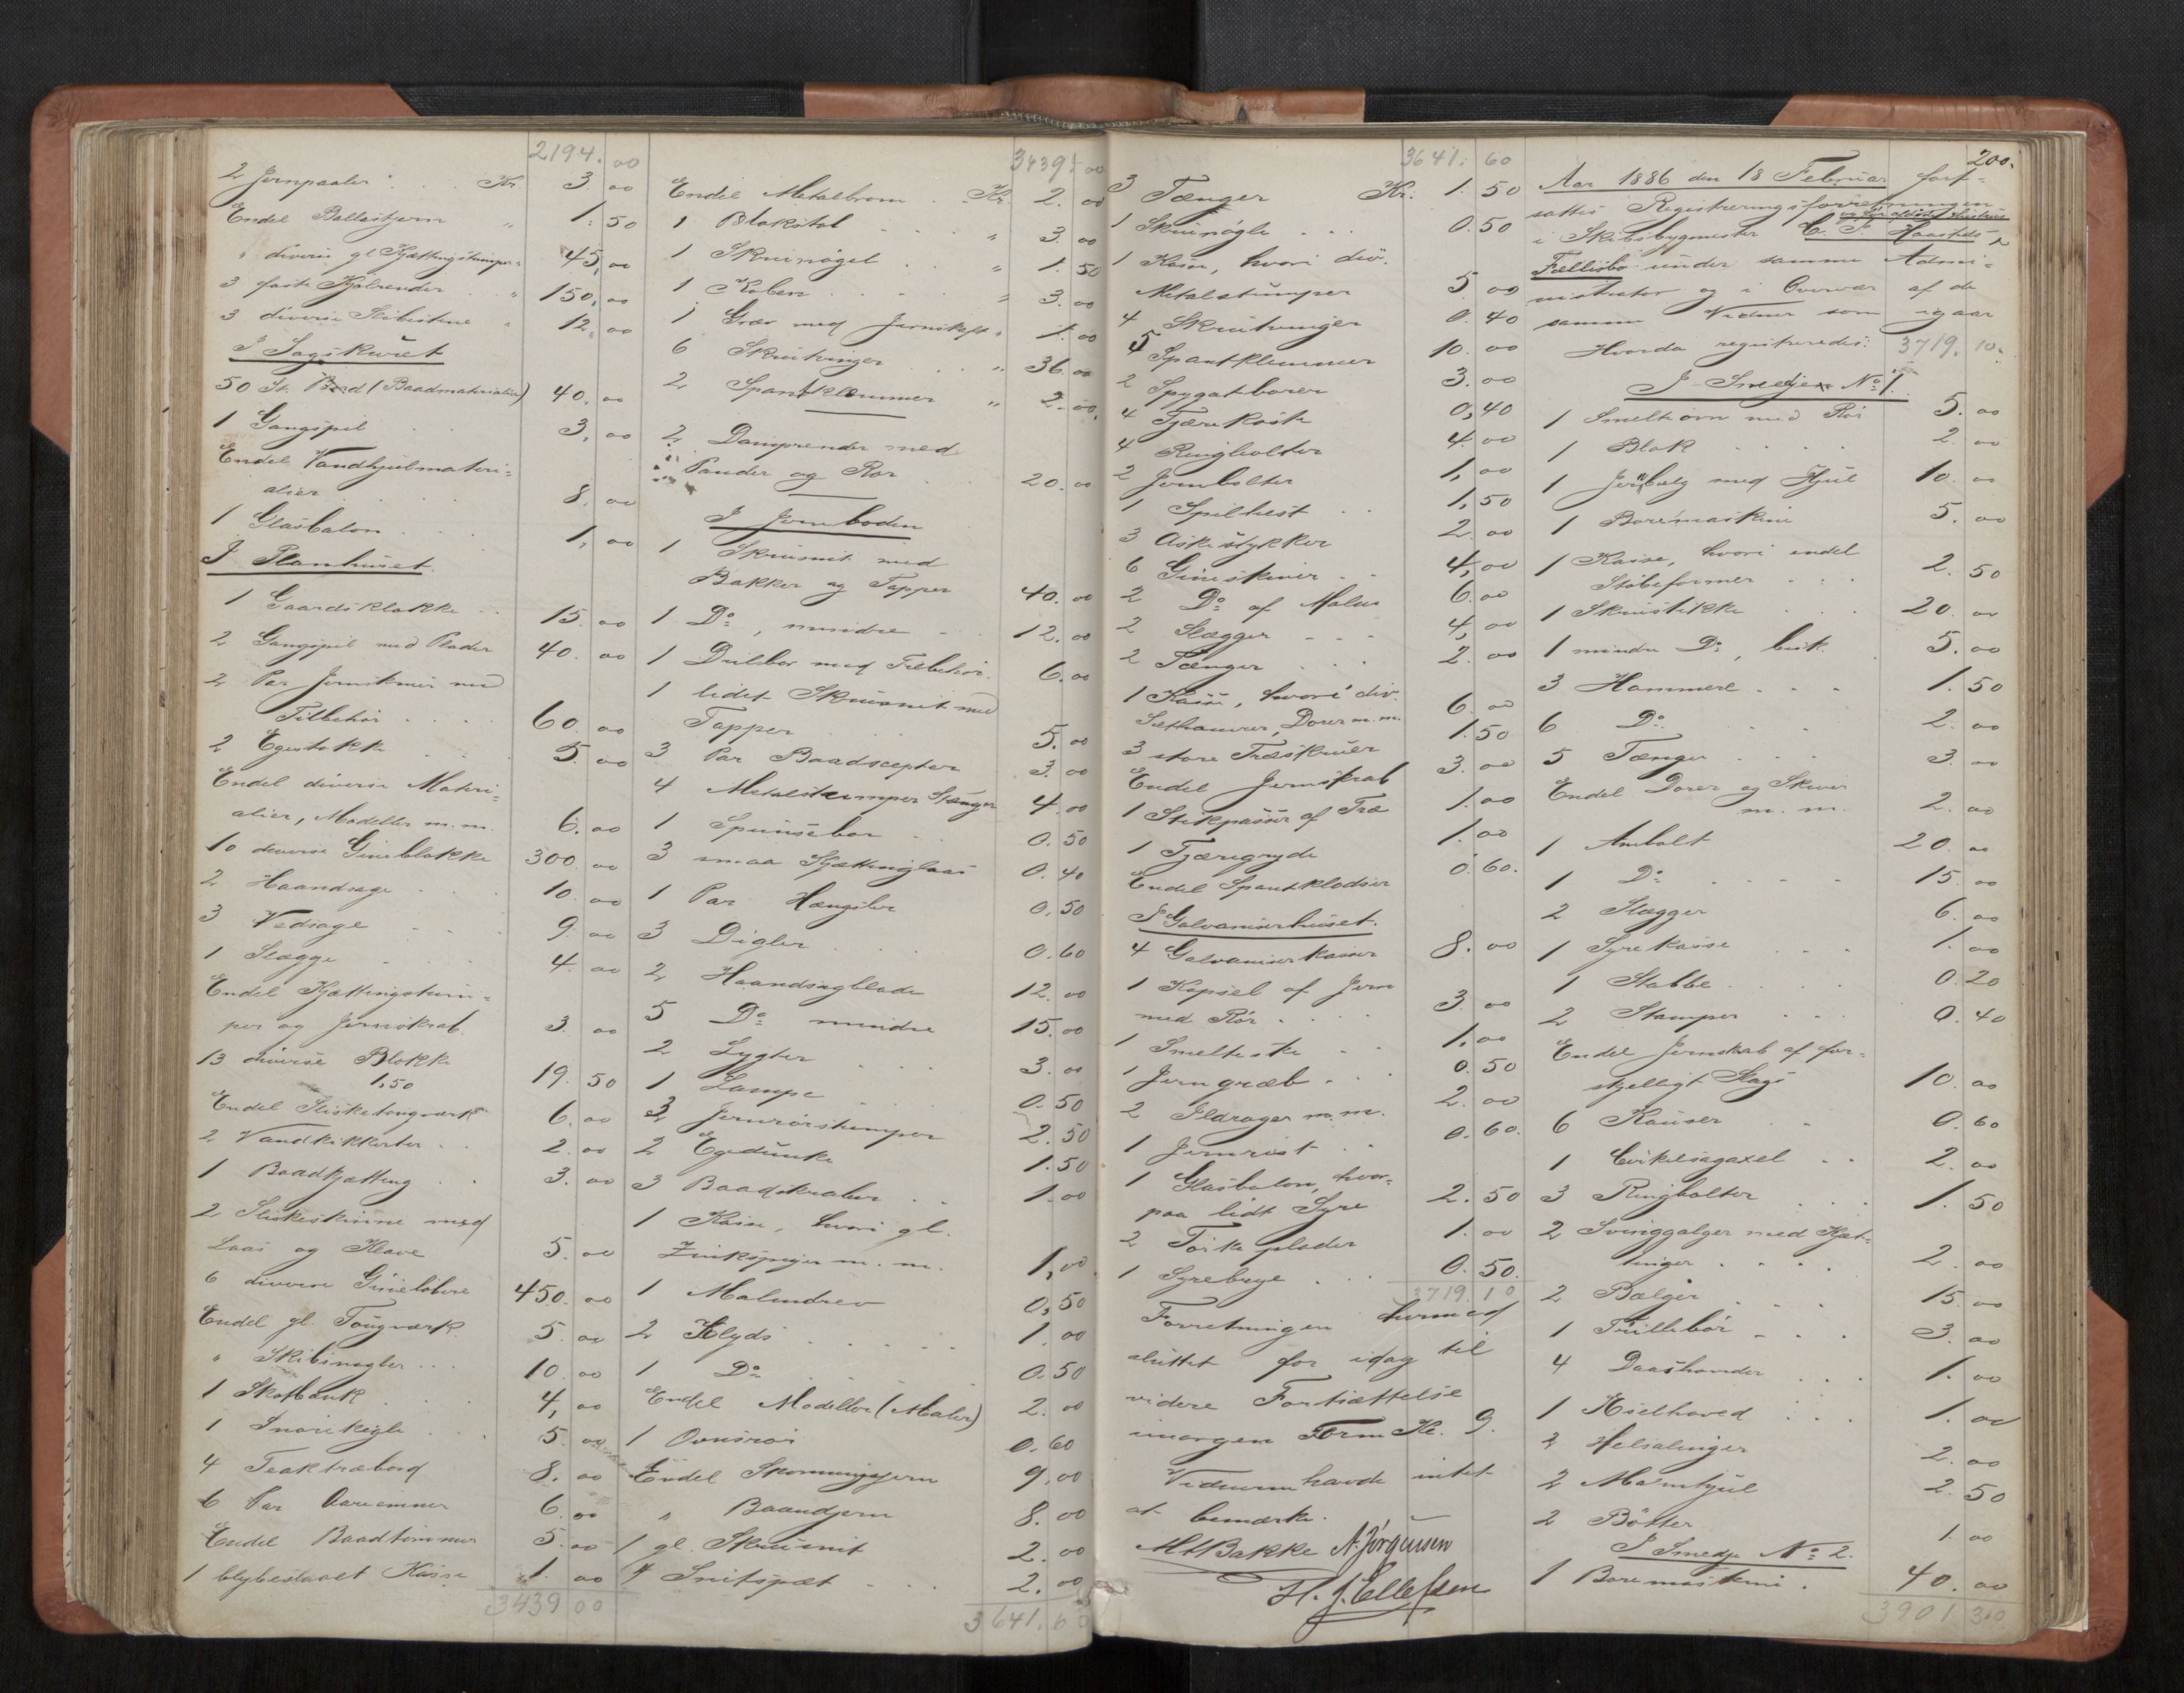 2194. 00
2 Jernpaaler . . . Kr. 3. 00
Endel Ballastjern " 1. 50
" diverse gl Kjættingstumper " 45. 00
3 faste Kjølrender . . " 150. 00
3 diverse Slibestene " 12. 00
I Sagskuret
50 St. Bord (Baadmaterialier) 40. 00
1 Gangspil . . 3. 00
Endel Vandhjulmateri=
alier . . . . 8. 00
1 Glasbalon . . . 1. 00
I Planhuset.
1 Gaardsklokke . . 15. 00
2 Gangspil med Plader 40. 00
2 Par Jernskruer med
Tilbehør . . . . 60. 00
2 Egestokke . . 5. 00
Endel diverse Materi=
alier, Modeller m. m. 6. 00
10 diverse Gineblokke 300. 00
2 Haandsage . . . 10. 00
3 Vedsage . . . 9. 00
1 Slægge . . . 4. 00
Endel Kjættingstum=
per og Jernskrab. 3. 00
13 diverse Blokke
1,50 19. 50
Endel Slisketougværk 6. 00
2 Vandkikkerter . . 2. 00
1 Baadkjætting . . 3. 00
2 Sliskeskinne med
Laas og Klave 5. 00
6 diverse Gineløbere 450. 00
Endel gl. Tougværk 5. 00
" Skibsnagler . . . 10. 00
1 Skotbænk . . . 4. 00
1 Snorekegle . . . 5. 00
4 Teaktræbord 8. 00
6 Par Aareemner 6. 00
Endel Baadtømmer 5. 00
1 blybeslaaet Kasse 1. 00
3439 00
3439. 00
Endel Metalbrom . Kr. 2. 00
1 Blokstol . . . " 3. 00
1 Skruenøgel . . " 1. 50
1 Koben . . . . " 3. 00
1 Græv med Jernskaft " 1. 00
6 Skrutvinger . . " 36. 00
2 Spantklemmer " 2. 00.
2 Damprender med
Pander og Rør . 20. 00
I Jernboden
1 Skruesnit med
Bakker og Tapper 40. 00
1 Do, mindre . . 12. 00
1 Drilbor med Tilbehør. 6. 00
1 lidet Skruesnit med
Tapper . . . 5. 00
3 Par Baadscepter 3. 00
4 Metalstumper Stænger 4. 00
1 Spunsebor . . 0. 50
3 smaa Kjættinglaas 0. 40
1 Par Hængsler 0. 50
3 Digler . . . 0. 60
2 Haandsagblade 12. 00
5 Do mindre 15. 00
2 Lygter . . . 3. 00
1 Lampe . . . 0. 50
3 Jernrørstumper 2. 50
2 Egedunke 1. 50
3 Baadskraber . . 1. 00
1 Kasse, hvori gl.
Zinkspiger m. m. 1. 00
1 Malmdrev 0. 50
2 Klyds . . . . 1. 00
1 Do . . . . 0. 50
Endel Modeller (Maler) 2. 00
1 Ovnsrør 0. 60
Endel Skoningsjern 9. 00
" Baandjern 8. 00
1 gl. Skruesnit 2. 00
4 Snitspæt . . . 2. 00
3641. 60
3641. 60
3 Tænger Kr. 1. 50
1 Skruenøgle . . . 0. 50
1 Kasse, hvori div.
Metalstumper 5 00
4 Skrutvinger 0. 40
5 Spantklemmer 10. 00
2 Spygatborer 3. 00
4 Tjærekoste 0,40
4 Ringbolter 4. 00
2 Jernbolter 1, 00
1 Spilhest . . 1, 50
3 Askestykker 2. 00
6 Gineskiver . . 4, 00
2 Do af Malm 6. 00
2 Slægger . . . 4, 00
2 Tænger . . . 2. 00
1 Kasse, hvori div.
Sæthamrer, Dorer m. m. 6. 00
3 store Træskruer 1. 50
Endel Jernskrab 3. 00
1 Stikpasser af Træ 1. 00
1 Tjæregryde 1. 00
Endel Spantklodser 0. 60.
I Galvaniserhuset.
4 Galvaniserkasser 8. 00
1 Kapsel af Jern
med Rør . . . . 3. 00
1 Smelteske . . 1. 00
1 Jerngræb . . . 0. 50
2 Ildrager m. m. 2. 00
1 Jernrist . . 0. 60.
1 Glasbalon, hvor=
paa lidt Syre 2. 50
2 Tørkeplader 1. 00
1 Syrebrye . . . 0. 50.
3719. 10
Forretningen hermed
sluttet for idag til
videre Fortsættelse
imorgen Form. Kl. 9.
Vidnerne havde intet
at bemærke.
MABakke N. Jørgensen
H. J. Ellefsen
200.
Aar 1886 den 18 Februar fort=
sattes Registreringsforretningen
og før afdøde Hustrus
i Skibsbygmester C. P. Haasteds
Fællisbo under samme Admi=
nistrator og i Overvær af de
samme Vidner som igaar
Hvorda registreredes: 3719. 10.
I Smedjen No 1.
1 Smelteovn med Rør 5. 00
1 Blok . . . . 2. 00
1 Jernbælg med Hjul 10. 00
1 Boremaskine 5. 00
1 Kasse, hvori endel
Støbeformer . . . 2. 50
1 Skruestikke . . . 20. 00
1 mindre Do, besk. 5. 00
3 Hammere . . . 1. 50
6 Do . . 2. 00
5 Tænger . . . 3. 00
Endel Dorer og Skruer
m. m. 2. 00
1 Ambolt 20. 00
1 Do . . . . 15. 00
2 Slægger 6. 00
1 Syrekasse . . . 1. 00
1 Stabbe . . . . 0. 20
2 Stamper . . . 0. 40
Endel Jernskrab af for=
skjelligt Slags 10. 00
6 Kauser . . 0. 60
1 Cirkelsagaxel . . 2. 00
3 Ringbolter . . . 1. 50
2 Svinggalger med Kjæt=
tinger . . . . 2. 00
2 Bælger 15. 00
1 Trillebør . . . 3. 00
4 Daashoveder . . . 1. 00
1 Hselhoved . . . 1. 00
2 Helsalinger 2. 00
2 Malmhjul 2. 50
2 Bøtter 1. 00
I Smedje No 2.
1 Boremaskine . 40. 00
3901 30